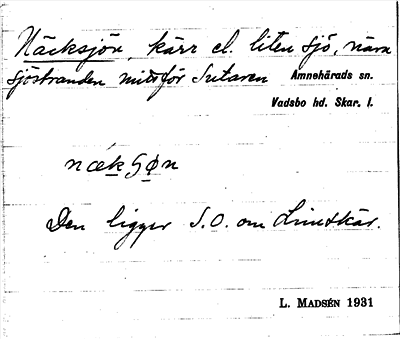 Näcksjön, kärr el. liten sjö, nära
sjöstranden mitt för Sutaren Amnehärads sn.
Vadsbo hd. Skar. l.
nækʃøn
Den ligger S.O. om Limskär.
L. MADSÉN 1931